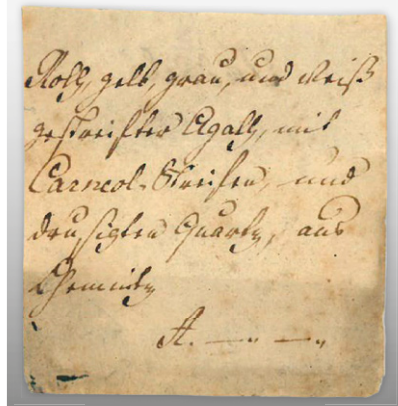 Roth, gelb, grau, und weiß
gestreifter Agath, mit
Carneol-Streifen, und
drusigten Quartz, aus
Chemnitz
A. —„ —„